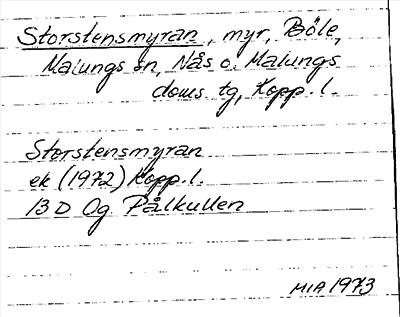 Storstensmyran, myr, Böle,
Malungs sn, Nås o. Malungs
doms. tg, Kopp. l.
Storstensmyran
ek (1972) Kopp. l.
13 D Og Pålkullen
MIA 1973